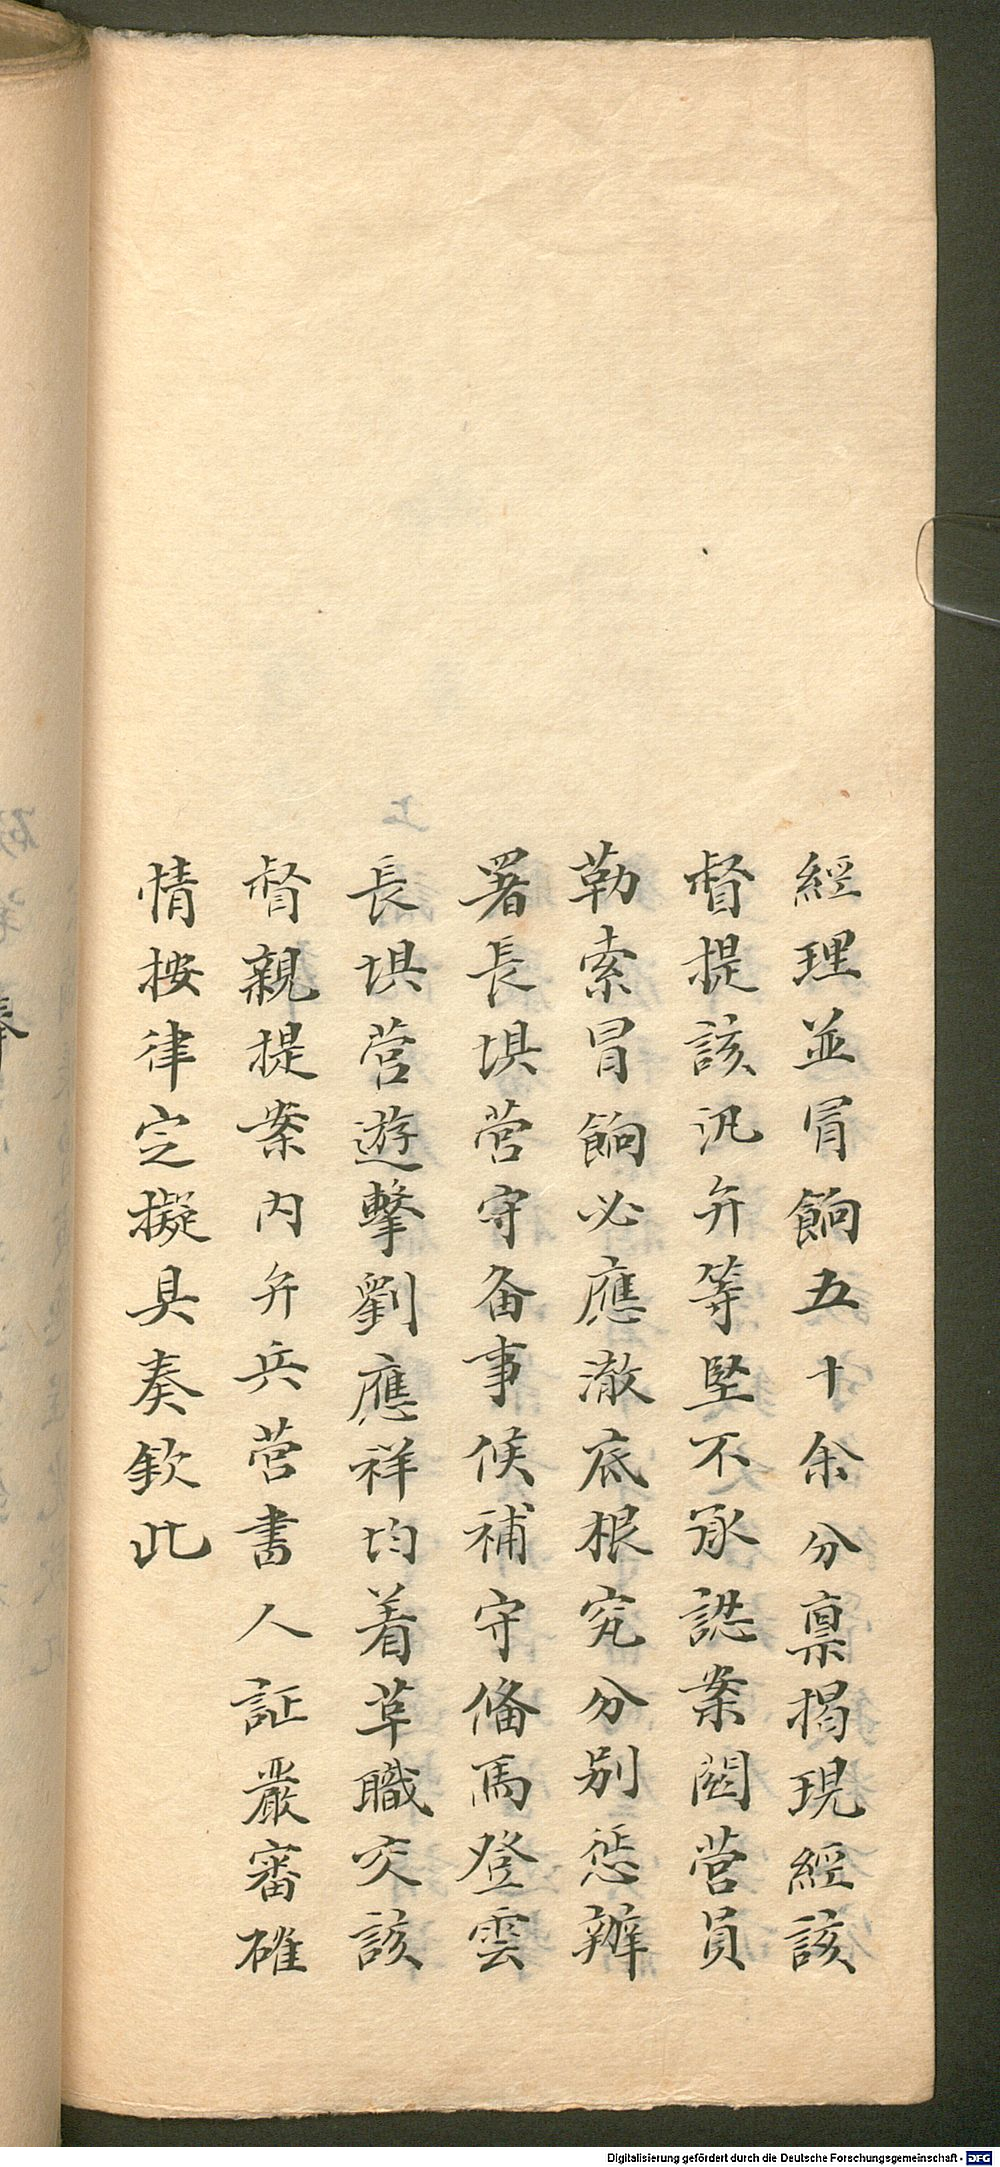 經理並冒餉五十余分稟揭現經該
督提該汛弁等堅不承認案關營員
勒索冒餉必應澈底根究分別懲辦
署長埧营守备事候補守俻馬登雲
長埧营遊擊劉應祥均着革職交該
督親提案内弁兵营書人証嚴審確
情按律定擬具奏欽此
Digitalisierung gefördert durch die Deutsche Forschungsgemeinschaft - DFG